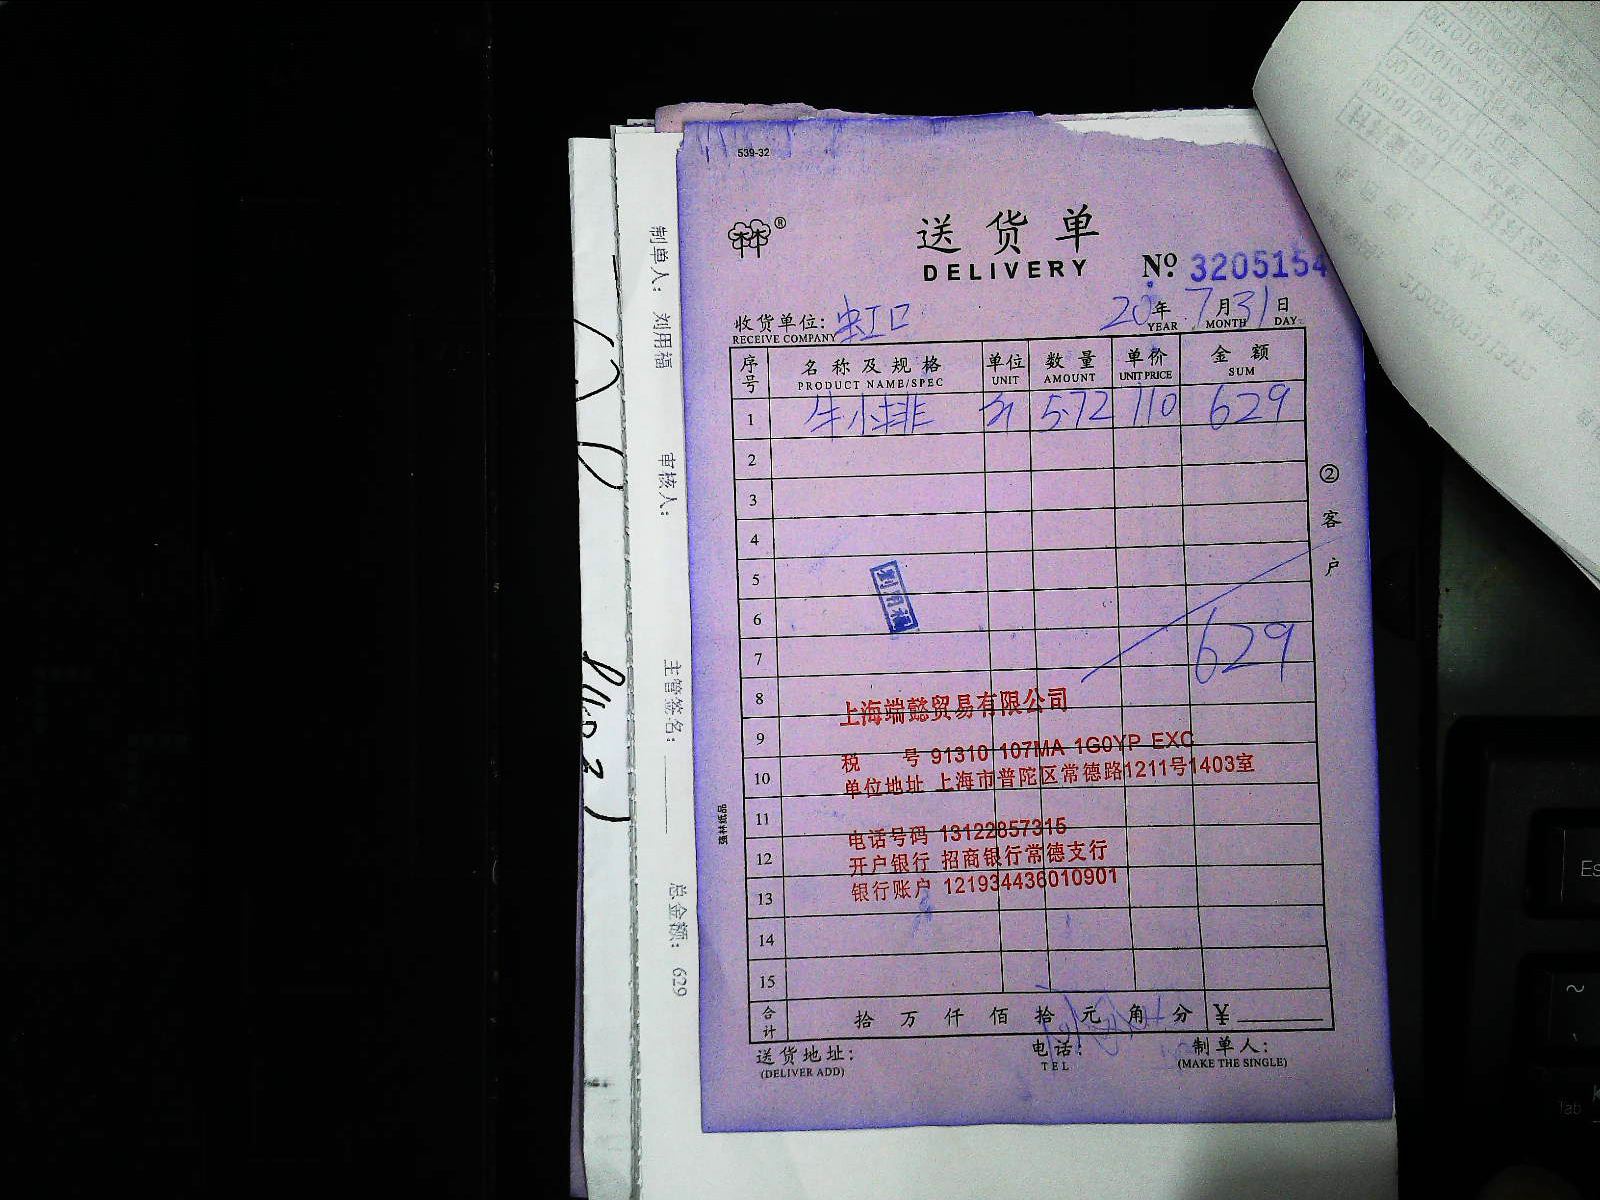 539-32
林®
送货单
DELIVERY
No. 3205154
收货单位: 虹口 20年 7月31日
RECEIVE COMPANY YEAR MONTH DAY
序号 名称及规格 单位 数量 单价 金额
PRODUCT NAME/SPEC UNIT AMOUNT UNIT PRICE SUM
1 牛小排 5.72 110 629
2
3
4
5
6
7 629
8
9
10
11
12
13
14
15
刘用福
上海端懿贸易有限公司
税 号 91310 107MA 1G0YP EXC
单位地址 上海市普陀区常德路1211号1403室
电话号码 13122857315
开户银行 招商银行常德支行
银行账户 121934436010901
合计 拾万仟佰拾元角分 ¥
送货地址: 电话: 制单人:
(DELIVER ADD) TEL (MAKE THE SINGLE)
②客户
制单人: 刘用福 审核人: 主管签名: 总金额: 629
Es
~
Tab